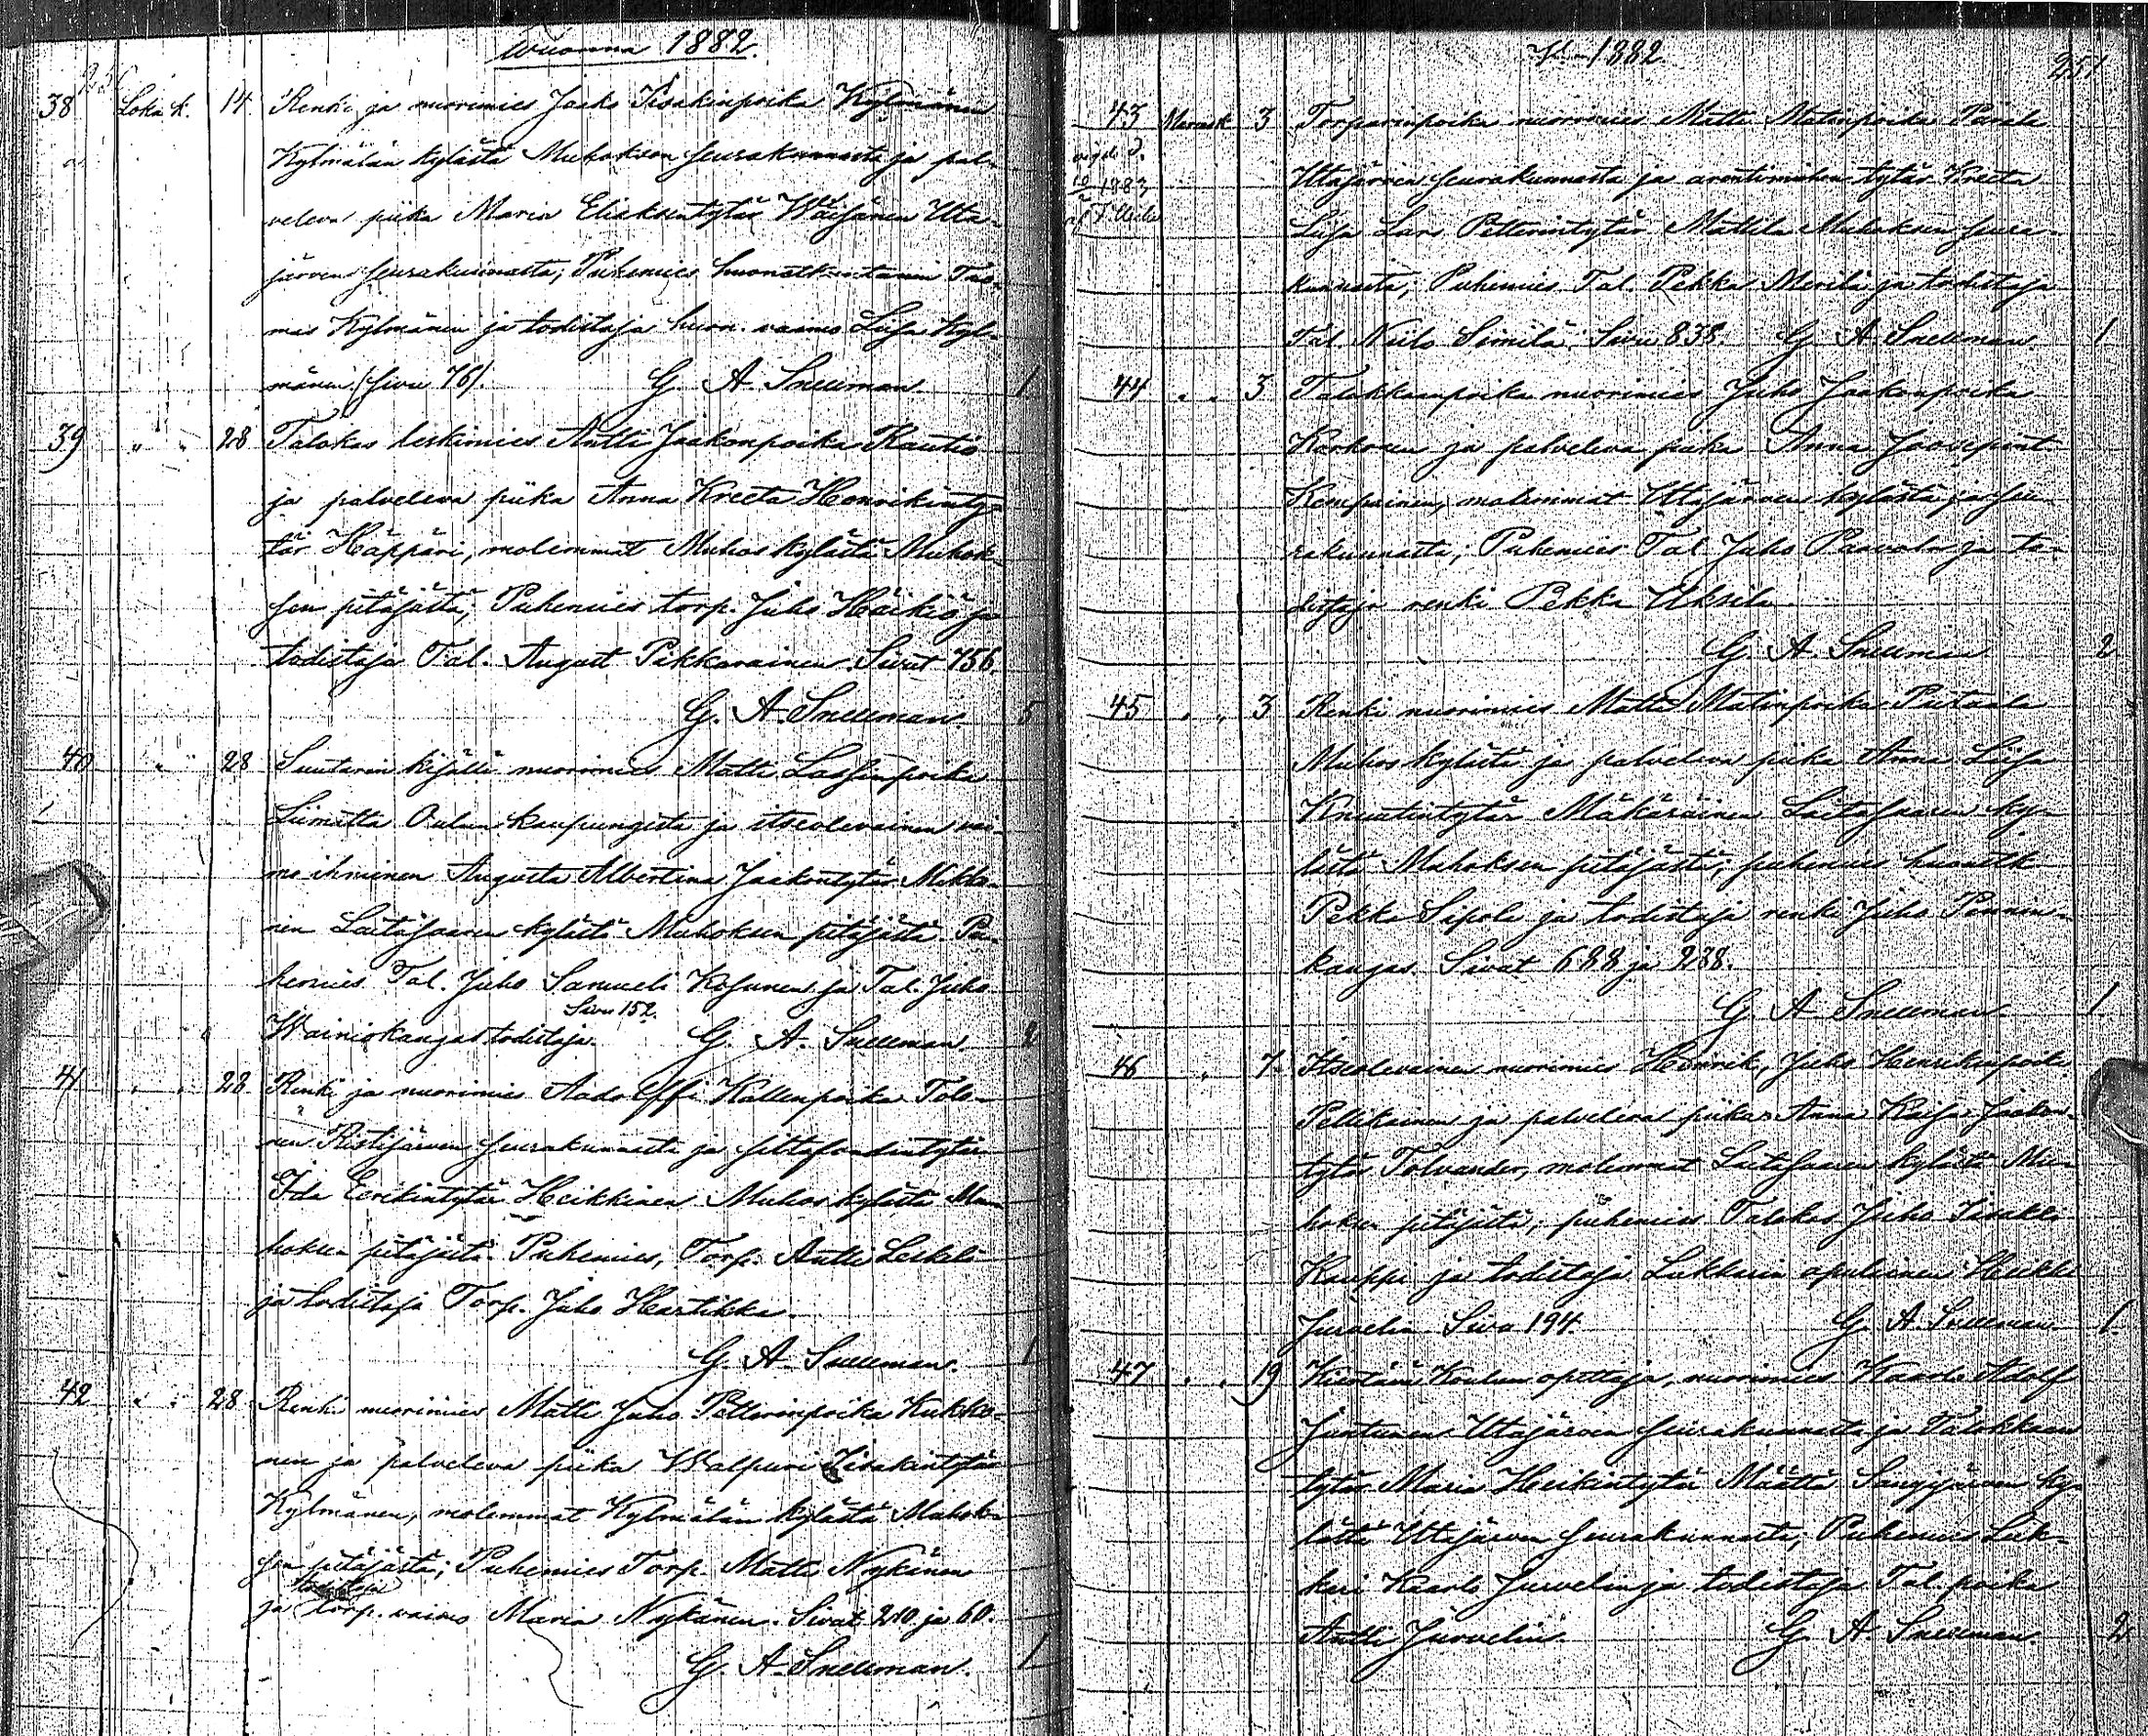 wuonna 1882.
38 Loka k. 14. Renki ja nuorimies Jaako Iisakinpoika Kylmänen
Kylmälän kylästä Muhoksen seurakunnasta ja pal-
veleva piika Maria Eliaksentytär Wäisänen Uta-
järven seurakunnasta; Puhemies Tuo-
mas Kylmänen ja todistaja huon. vaimo Liisa Kyl-
mänen (sivu 76). G. A. Snellman. 1
39 " " 28 Talokas leskimies Antti Jaakonpoika Kautio
ja palveleva piika Anna Kreeta Henrikinty-
tär Häppäri, molemmat Muhos kylästä Muhok-
sen pitäjästä; Puhemies torp. Juho Häikiö ja
todistaja Tal. August Pikkarainen. Sivut 756.
G. A. Snellman. 5
40 " " 28 Suutarin kisälli nuorimies Matti Lassinpoika
Liimatta Oulun kaupungista ja itseolevainen vai-
mo ihminen Augusta Albertina Jaakontytär Mikko-
nen Laitasaaren kylästä Muhoksen pitäjästä. Pu-
hemies Tal. Juho Samueli Kosunen ja Tal. Juho
Sivu 152.
Wainiokangas todistaja. G. A. Snellman. 2
41 " " 28. Renki ja nuorimies Aadolffi Kallenpoika Tolo-
nen Ristijärven seurakunnasta ja
Ida Eerikintytär Heikkinen Muhos kylästä Mu-
hoksen pitäjästä. Puhemies, Torp. Antti Leskelä
ja todistaja Torp. Juho Hartikka.
G. A. Snellman. 1
42 " " 28 Renki nuorimies Matti Juho Petterinpoika Kukko-
nen ja palveleva piika Walpuri Iisakintytär
Kylmänen, molemmat Kylmälän kylästä Muhok-
sen pitäjästä; Puhemies Torp. Matti Nykänen
todistaja
ja torp. vaimo Maria Nykänen. Sivat 210 ja 60.
G. A. Snellman. 1
1882 251
43 Marrask 3 Torparinpoika nuorimies Matti Matinpoika
1883 Utajärven seurakunnasta ja tytär Kreeta
Liisa Lars Petterintytär Mattila Muhoksen seura-
kunnasta; Puhemies Tal. Pekka Merilä ja todistaja
Tal. Niilo Similä. Sivu 838. G. A. Snellman 1
44 " " 3 Talokkaanpoika nuorimies Juho Jaakonpoika
Karkonen ja palveleva piika Anna
Kemppainen, molemmat Utajärven kylästä ja seu-
rakunnasta; Puhemies Tal. Juho Paavola ja to-
distaja renki Pekka Uksila.
G. A. Snellman 2
45 " " 3 Renki nuorimies Matti Matinpoika
Muhos kylästä ja palveleva piika Anna Liisa
Knuutintytär Mäkäräinen Laitasaaren ky-
lästä Muhoksen pitäjästä; puhemies
Pekka Sipola ja todistaja renki Juho Pennin-
kangas. Sivat 688 ja 238.
G. A. Snellman. 1
46 " 7. Itseolevainen nuorimies Henrik, Juho Henrikinpoika
Pellikainen ja palveleva piika Anna Kaisa Jaakon-
tytär Tolvander, molemmat Laitasaaren kylästä Mu-
hoksen pitäjästä; puhemies Talokas Juho Iisakki
Kauppi ja todistaja Lukkarin apulainen Heikki
Jurvelin. Sivu 194. G. A. Snellman. 1.
47 " " 19 Koulun opettaja, nuorimies Kaarlo Adolf
Juntunen Utajärven seurakunnasta ja Talokkaan
tytär Maria Heikintytär Määttä Sangijärven ky-
lästä Utajärven seurakunnasta; Puhemies Luk-
kari Kaarlo Jurvelin ja todistaja Tal. poika
Antti Jurvelin. G. A. Snellman. 2